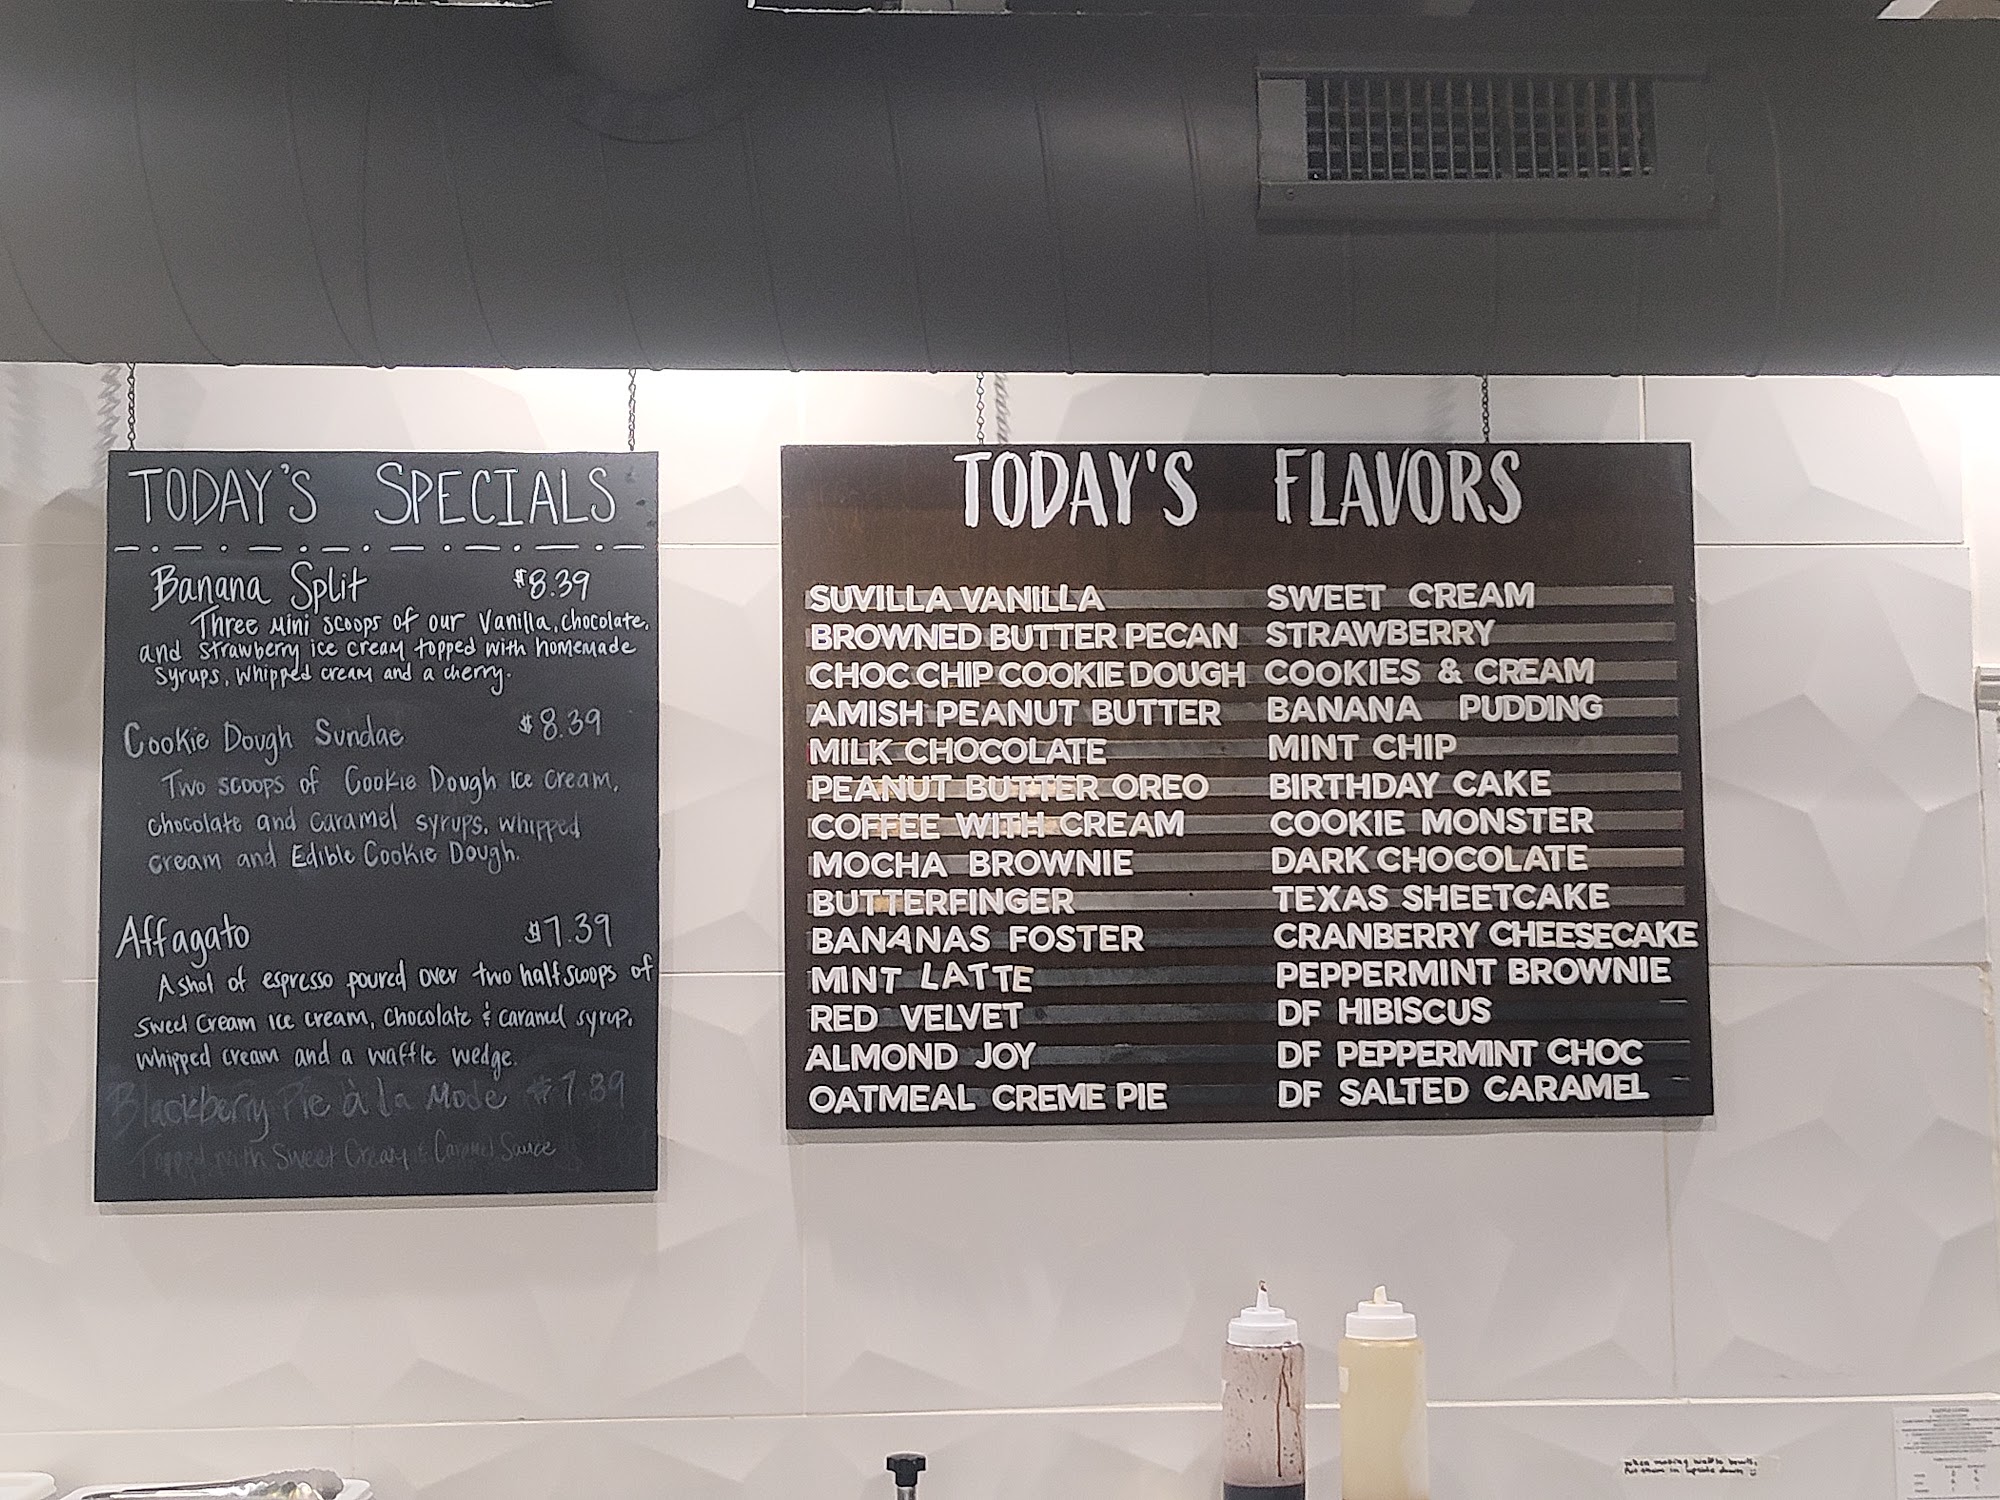 TODAY'S SPECIALS
Banana Split $8.39
Three Mini scoops of our Vanilla, chocolate,
and strawberry ice cream topped with homemade
syrups, whipped cream and a cherry.
Cookie Dough Sundae $8.39
Two scoops of Cookie Dough Ice Cream,
chocolate and caramel syrups, whipped
cream and Edible Cookie Dough.
Affagato $7.39
A shot of espresso poured over two half scoops of
Sweet Cream Ice cream, Chocolate & caramel syrup,
whipped cream and a waffle wedge.
Blackberry Pie à la Mode $7.89
Topped with Sweet Cream & Caramel Sauce
TODAY'S FLAVORS
SUVILLA VANILLA
BROWNED BUTTER PECAN
CHOC CHIP COOKIE DOUGH
AMISH PEANUT BUTTER
MILK CHOCOLATE
PEANUT BUTTER OREO
COFFEE WITH CREAM
MOCHA BROWNIE
BUTTERFINGER
BANANAS FOSTER
MINT LATTE
RED VELVET
ALMOND JOY
OATMEAL CREME PIE
SWEET CREAM
STRAWBERRY
COOKIES & CREAM
BANANA PUDDING
MINT CHIP
BIRTHDAY CAKE
COOKIE MONSTER
DARK CHOCOLATE
TEXAS SHEETCAKE
CRANBERRY CHEESECAKE
PEPPERMINT BROWNIE
DF HIBISCUS
DF PEPPERMINT CHOC
DF SALTED CARAMEL
when making waffle bowls,
Put them in upside down